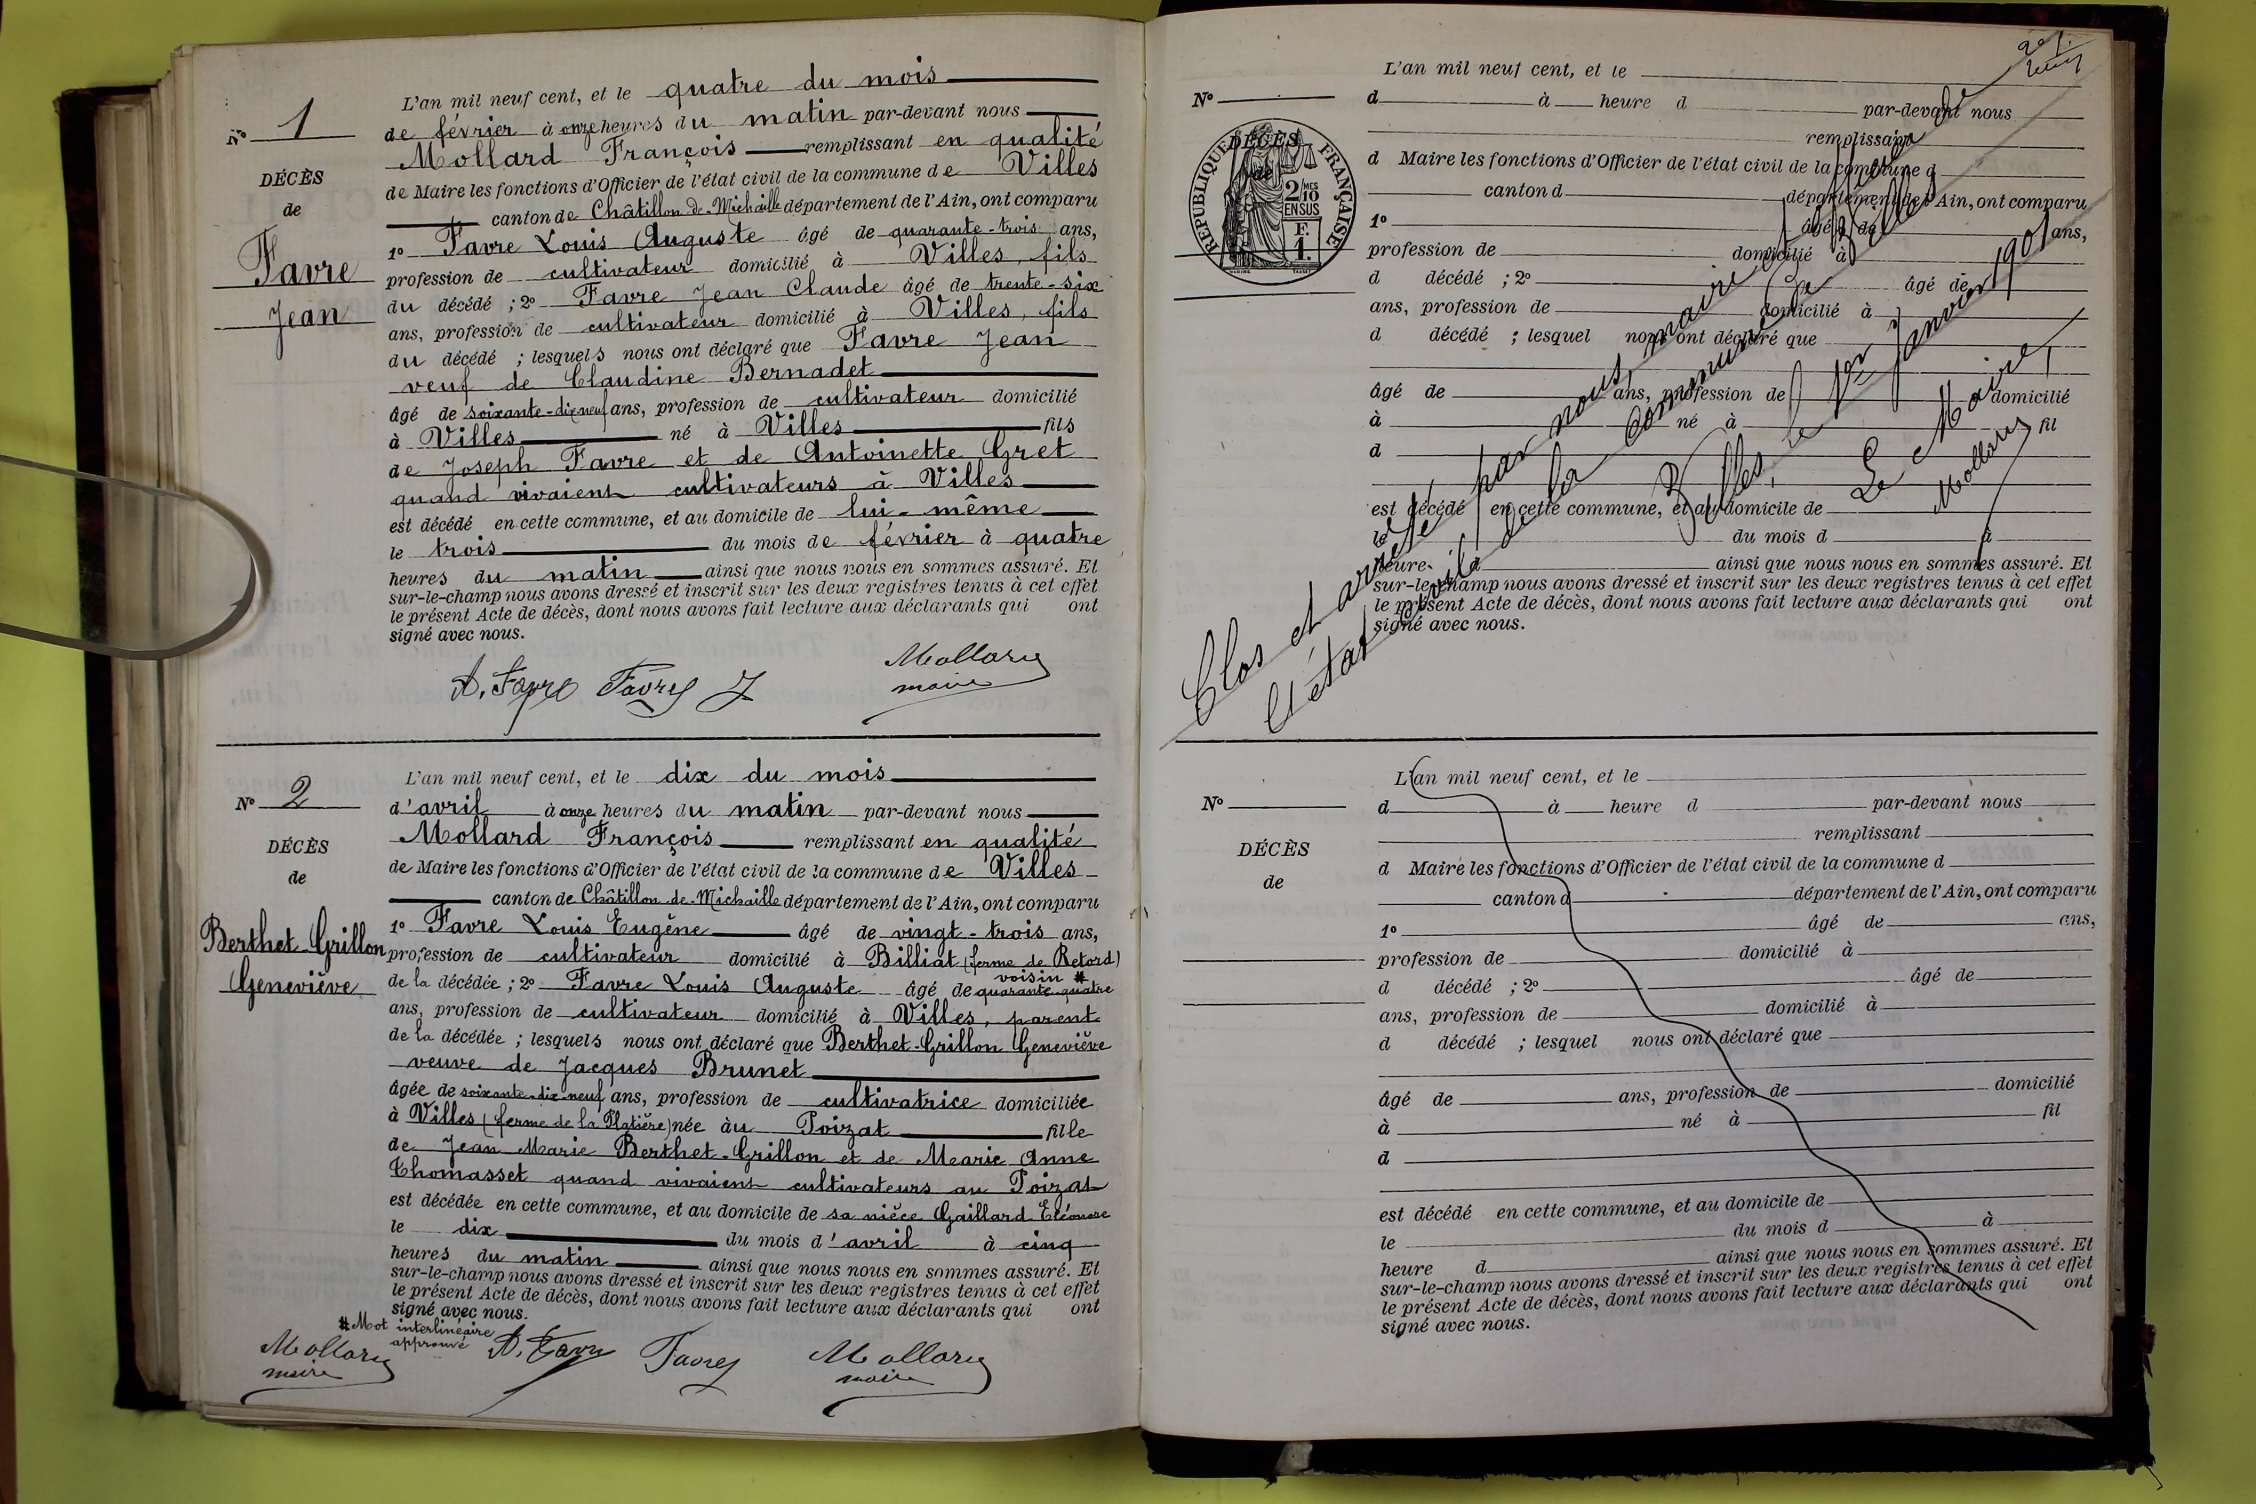 L'an mil neuf cent, et le quatre du mois
No 1
de février à onze heures du matin par-devant nous
Mollard François remplissant en qualité
DÉCÈS
de Maire les fonctions d'Officier de l'état civil de la commune de Villes
de
canton de Châtillon-de-Michaille département de l'Ain, ont comparu
1o Favre Louis Auguste âgé de quarante-trois ans,
Favre
profession de cultivateur domicilié à Villes, fils
du décédé ; 2o Favre Jean Claude âgé de trente-six
Jean
ans, profession de cultivateur domicilié à Villes, fils
du décédé ; lesquels nous ont déclaré que Favre Jean
veuf de Claudine Bernadet
âgé de soixante-dix neuf ans, profession de cultivateur domicilié
à Villes né à Villes fils
de Joseph Favre et de Antoinette Gret
quand vivaient cultivateurs à Villes
est décédé en cette commune, et au domicile de lui-même
le trois du mois de février à quatre
heures du matin ainsi que nous nous en sommes assuré. Et
sur-le-champ nous avons dressé et inscrit sur les deux registres tenus à cet effet
le présent Acte de décès, dont nous avons fait lecture aux déclarants qui ont
signé avec nous.
A. Favre Favre J Mollard
maire
L'an mil neuf cent, et le dix du mois
No 2
d'avril à onze heures du matin par-devant nous
Mollard François remplissant en qualité
DÉCÈS
de Maire les fonctions d'Officier de l'état civil de la commune de Villes
de
canton de Châtillon-de-Michaille département de l'Ain, ont comparu
1o Favre Louis Eugène âgé de vingt-trois ans,
Berthet-Grillon
profession de cultivateur domicilié à Billiat (ferme de Retord)
voisin #
Geneviève
de la décédée ; 2o Favre Louis Auguste âgé de quarante-quatre
ans, profession de cultivateur domicilié à Villes, parent
de la décédée ; lesquels nous ont déclaré que Berthet-Grillon Geneviève
veuve de Jacques Brunet
âgée de soixante-dix-neuf ans, profession de cultivatrice domiciliée
à Villes (ferme de la Platière) née àu Poizat fille
de Jean Marie Berthet-Grillon et de Marie Anne
Thomasset quand vivaient cultivateurs au Poizat
est décédée en cette commune, et au domicile de sa nièce Gaillard Eléonore
le dix du mois d'avril à cinq
heures du matin ainsi que nous nous en sommes assuré. Et
sur-le-champ nous avons dressé et inscrit sur les deux registres tenus à cet effet
le présent Acte de décès, dont nous avons fait lecture aux déclarants qui ont
signé avec nous.
# Mot interlinéaire
approuvé
Mollard A. Favre Favre Mollard
maire maire
L'an mil neuf cent, et le
No
d à heure d par-devant nous
remplissant
DÉCÈS
de
d Maire les fonctions d'Officier de l'état civil de la commune d
canton d département de l'Ain, ont comparu
RÉPUBLIQUE FRANÇAISE
2 MES
10
EN SUS
F.
1.
1o âgé de ans,
profession de domicilié à
d décédé ; 2o âgé de
ans, profession de domicilié à
d décédé ; lesquel nous ont déclaré que
âgé de ans, profession de domicilié
à né à fil
d
est décédé en cette commune, et au domicile de
le du mois d à
heure d ainsi que nous nous en sommes assuré. Et
sur-le-champ nous avons dressé et inscrit sur les deux registres tenus à cet effet
le présent Acte de décès, dont nous avons fait lecture aux déclarants qui ont
signé avec nous.
Clos et arrêté par nous, maire et officier de
l'état civil de la commune de Villes
Villes, le 1er Janvier 1901
Le Maire,
Mollard
L'an mil neuf cent, et le
No
d à heure d par-devant nous
remplissant
DÉCÈS
d Maire les fonctions d'Officier de l'état civil de la commune d
de
canton d département de l'Ain, ont comparu
1o âgé de ans,
profession de domicilié à
d décédé ; 2o âgé de
ans, profession de domicilié à
d décédé ; lesquel nous ont déclaré que
âgé de ans, profession de domicilié
à né à fil
d
est décédé en cette commune, et au domicile de
le du mois d à
heure d ainsi que nous nous en sommes assuré. Et
sur-le-champ nous avons dressé et inscrit sur les deux registres tenus à cet effet
le présent Acte de décès, dont nous avons fait lecture aux déclarants qui ont
signé avec nous.